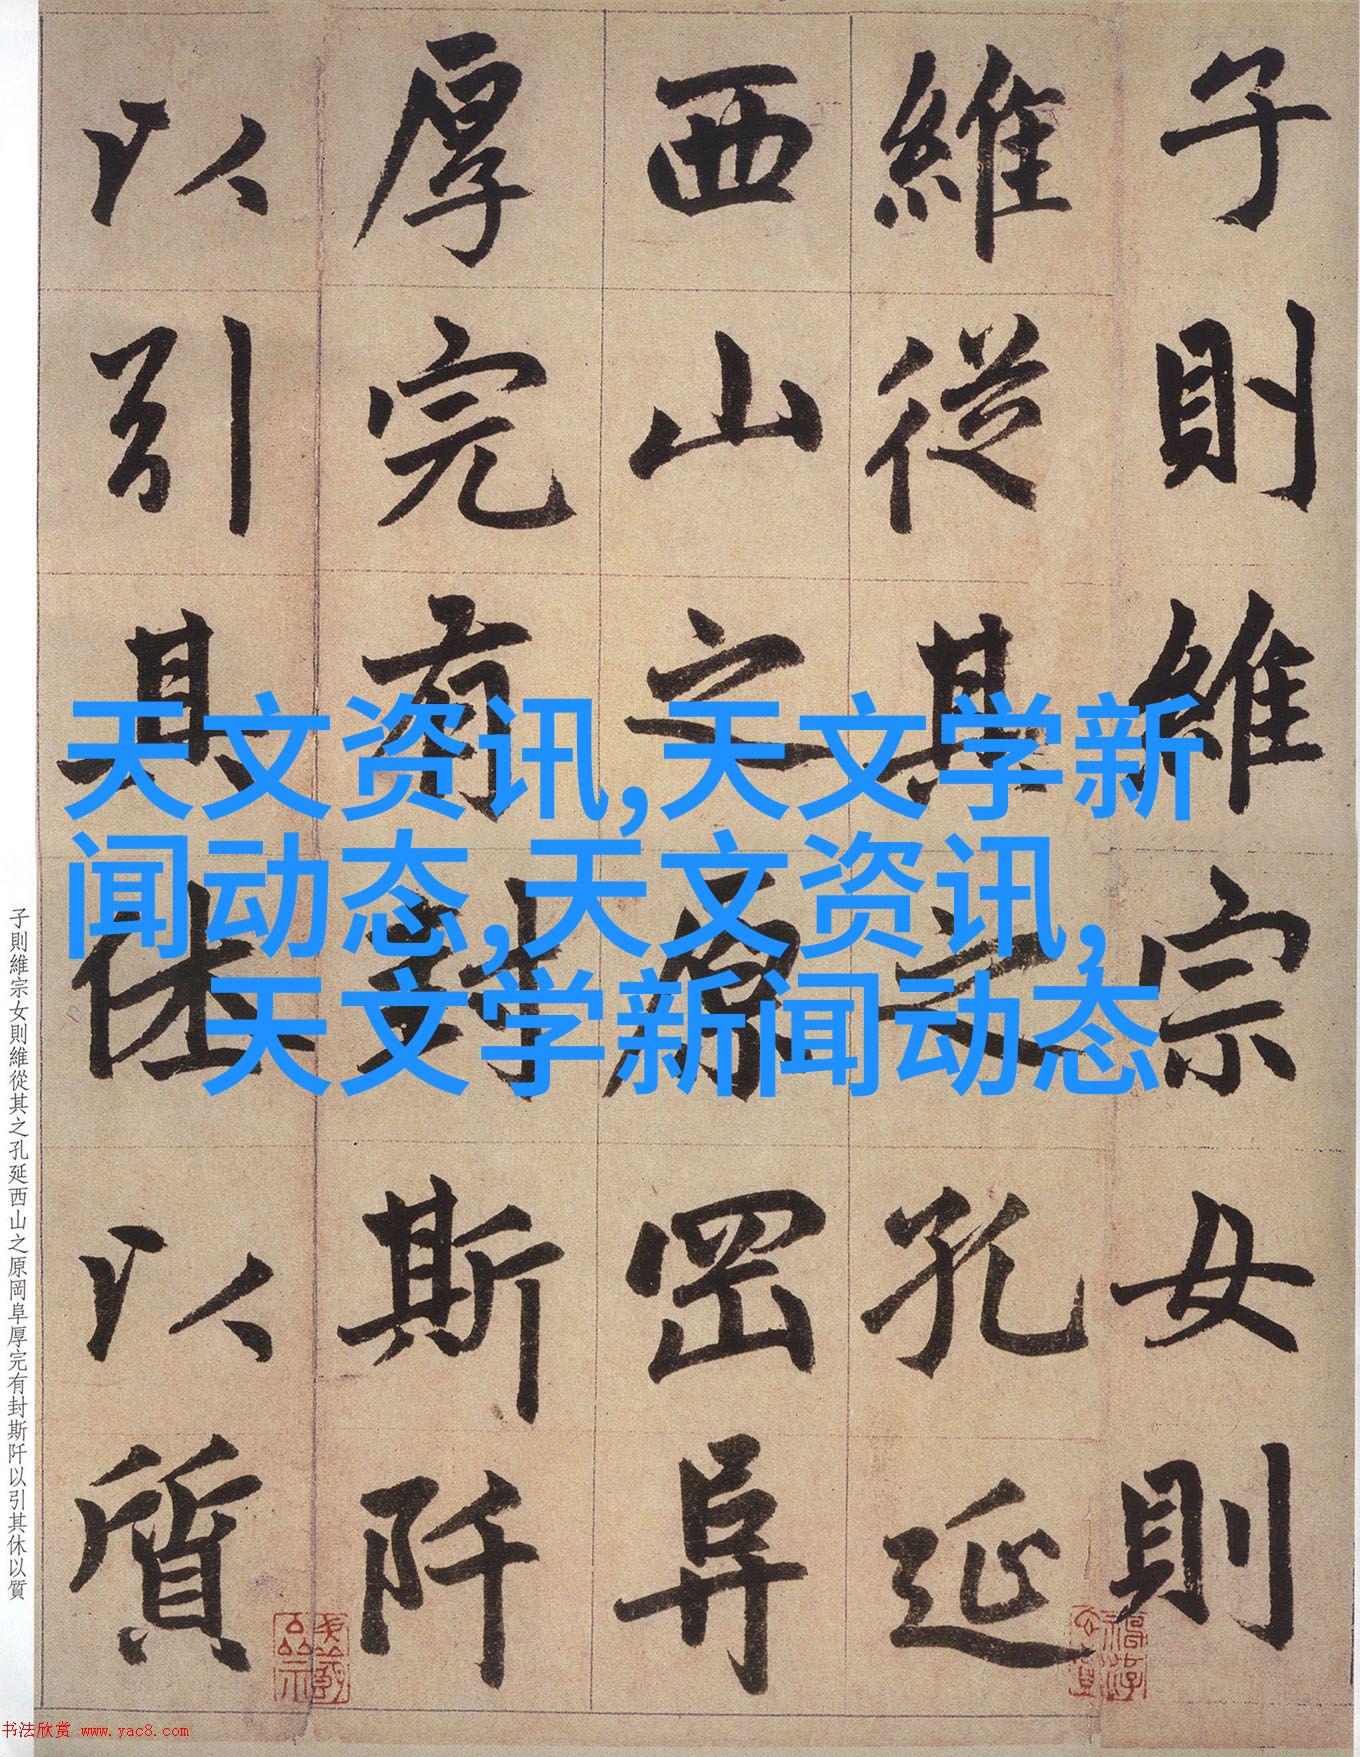 子則維宗女則
維從其之孔延
西山之原岡阜
厚完有封斯阡
以引其休以質
天文资讯,天文学新
闻动态,天文资讯,
天文学新闻动态
子則維宗女則維從其之孔延西山之原岡阜厚完有封斯阡以引其休以質
书法欣赏 www.yac8.com